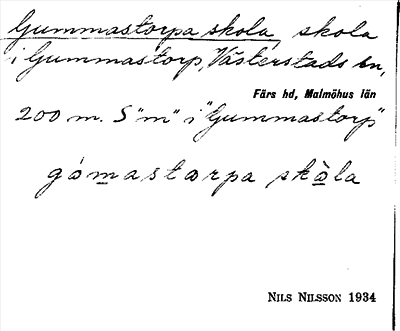 Gummastorpa skola, skola
i Gummastorp, Västerstads sn,
Färs hd, Malmöhus län
200 m. S "m" i "Gummastorp"
gómastarpa skàla
NILS NILSSON 1934